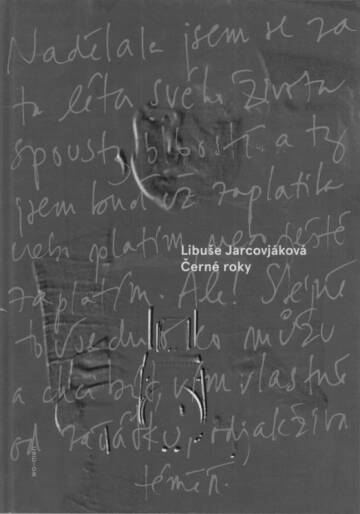 Nadělala jsem se za
ta léta svého života
spoustu blbostí a ty
jsem buď už zaplatila
nebo platím nebo ještě
zaplatím. Ale! Stejně
to všechno ko můžu
a chci být, vím vlastně
od začátku, odjakživa
téměř.
Libuše Jarcovjáková
Černé roky
wo-men